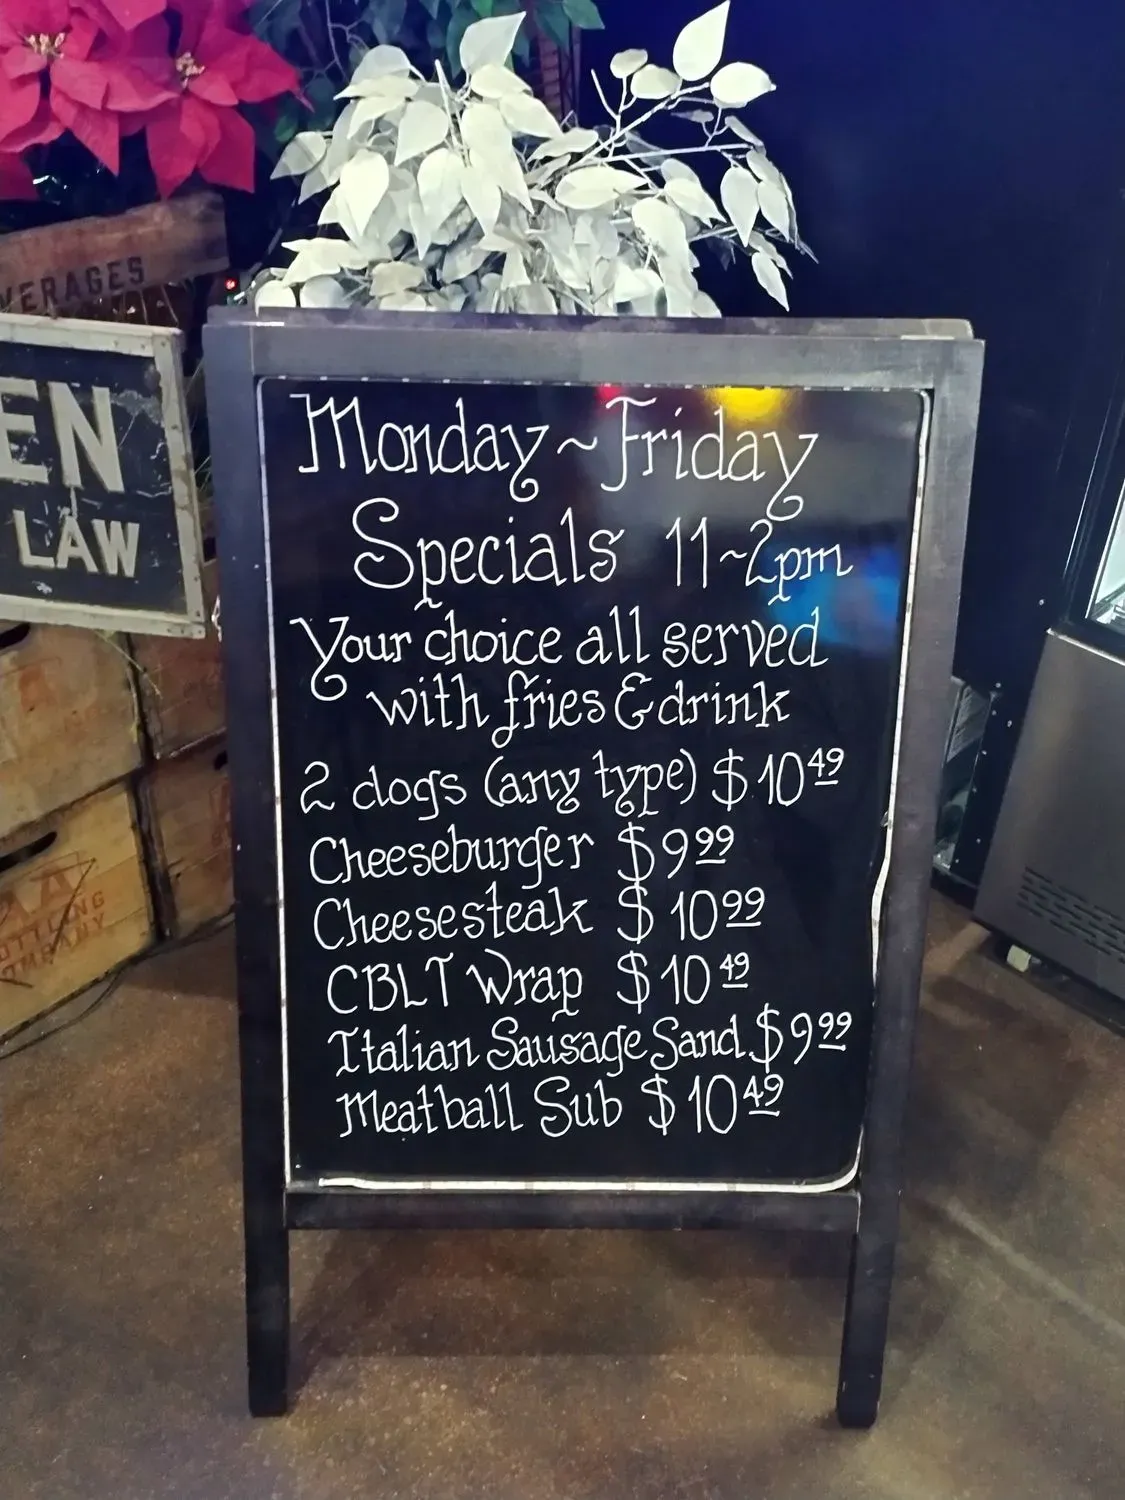 VERAGES
EN
LAW
AA
OTTLING
COMPANY
Monday~Friday
Specials 11~2pm
Your choice all served
with fries & drink
2 dogs (any type) $10 49
Cheeseburger $9 99
Cheesesteak $10 99
CBLT Wrap $10 49
Italian Sausage Sand. $9 99
Meatball Sub $10 49